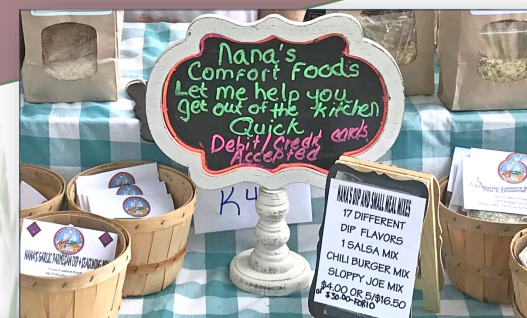 Nana's
Comfort Foods
Let me help you
get out of the kitchen
Quick
Debit/Credit cards
Accepted
K4
NANA'S DIP AND SMALL MEAL MIXES
17 DIFFERENT
DIP FLAVORS
1 SALSA MIX
CHILI BURGER MIX
SLOPPY JOE MIX
$4.00 OR 5/$16.50
or $30.00 FOR 10
NANA'S GARLIC PARMESAN DIP & SEASONING MIX